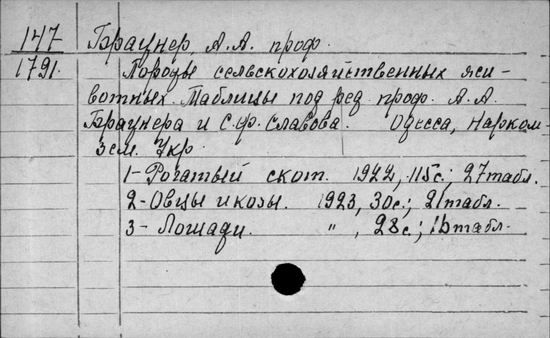 147 Браунер, А.А. проф.
1791. Породы сельскохозяйственных жи-
вотных. Таблицы под ред. проф. А.А.
Браунера и С.Ф. Славова. Одесса, Нарком-
зем. Укр.
1- Рогатый скот. 1922, 115с.; 27табл.
2- Овцы и козы. 1923, 30с.; 21табл.
3- Лошади. " , 28с.; 16табл.